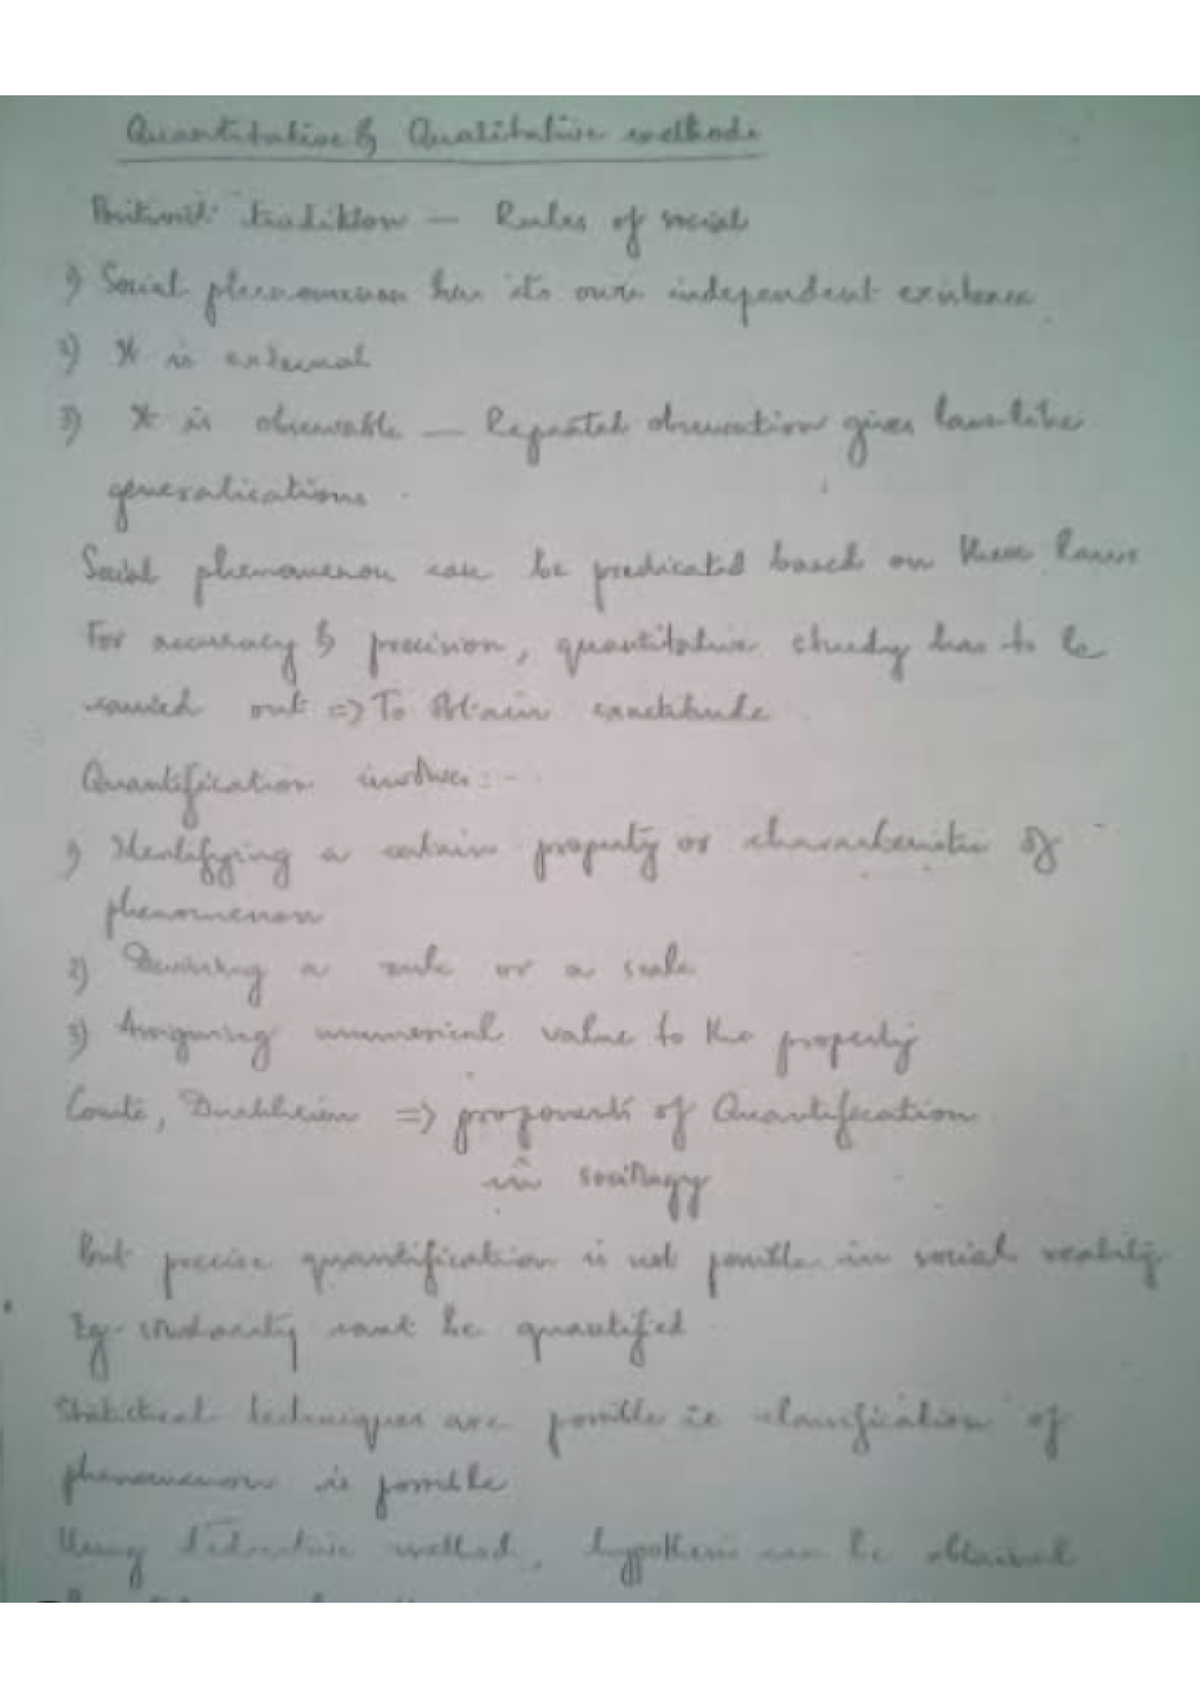 Quantitative & Qualitative methods
Positivist tradition — Rules of social
1) Social phenomenon has its own independent existence
2) It is external
3) It is observable — Repeated observation gives law like
generalisations
Social phenomenon can be predicated based on these laws
For accuracy & precision, quantitative study has to be
carried out => To obtain exactitude
Quantification involves :-
1) Identifying a certain property or characteristic of
phenomenon
2) Devising a rule or a scale
3) Assigning numerical value to the property
Comte, Durkheim => proponents of Quantification
in sociology
But precise quantification is not possible in social reality
Eg- solidarity cant be quantified
Statistical techniques are possible ie classification of
phenomenon is possible
Using deductive method, hypothesis can be obtained